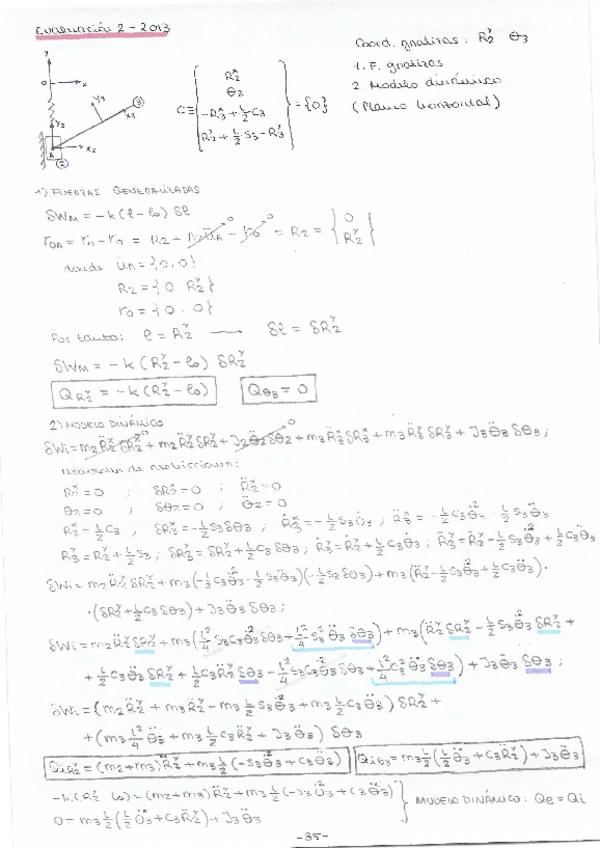 EVALUACIÓN 2 - 2013
Coord. gnalizas: R₂ʸ θ₃
1. F. gnalizas
2. Modelo dinámico
(Plano horizontal)
C ≡ { R₂ˣ ; θ₂ ; -R₃ˣ + L/2 C₃ ; R₂ʸ + L/2 S₃ - R₃ʸ } = {0}
1) FUERZAS GENERALIZADAS
δWM = -k (l - l₀) δl
donde
R₂ = {0 R₂ʸ}
r₀ = {0, 0}
Por tanto: l = R₂ʸ → δl = δR₂ʸ
δWM = -k (R₂ʸ - l₀) δR₂ʸ
Q R₂ʸ = -k (R₂ʸ - l₀) Qθ₃ = 0
2) MODELO DINÁMICO
δWi = m₂R̈₂ˣ δR₂ˣ + m₂R̈₂ʸ δR₂ʸ + J₂θ̈₂ δθ₂ + m₃R̈₃ˣ δR₃ˣ + m₃R̈₃ʸ δR₃ʸ + J₃θ̈₃ δθ₃ ;
R₂ˣ = 0 ; δR₂ˣ = 0 ; R̈₂ˣ = 0
θ₂ = 0 ; δθ₂ = 0 ; θ̈₂ = 0
R₃ˣ = L/2 C₃ ; δR₃ˣ = -L/2 S₃ δθ₃ ; Ṙ₃ˣ = -L/2 S₃ θ̇₃ ; R̈₃ˣ = -L/2 C₃ θ̇₃² - L/2 S₃ θ̈₃
R₃ʸ = R₂ʸ + L/2 S₃ ; δR₃ʸ = δR₂ʸ + L/2 C₃ δθ₃ ; Ṙ₃ʸ = Ṙ₂ʸ + L/2 C₃ θ̇₃ ; R̈₃ʸ = R̈₂ʸ - L/2 S₃ θ̇₃² + L/2 C₃ θ̈₃
δWi = m₂R̈₂ʸ δR₂ʸ + m₃(-L/2 C₃ θ̇₃² - L/2 S₃ θ̈₃)(-L/2 S₃ δθ₃) + m₃(R̈₂ʸ - L/2 S₃ θ̇₃² + L/2 C₃ θ̈₃) ·
· (δR₂ʸ + L/2 C₃ δθ₃) + J₃θ̈₃ δθ₃ ;
δWi = m₂R̈₂ʸ δR₂ʸ + m₃(L²/4 S₃C₃ θ̇₃² δθ₃ + L²/4 S₃² θ̈₃ δθ₃) + m₃(R̈₂ʸ δR₂ʸ - L/2 S₃ θ̇₃² δR₂ʸ +
+ L/2 C₃ θ̈₃ δR₂ʸ + L/2 C₃ R̈₂ʸ δθ₃ - L²/4 S₃C₃ θ̇₃² δθ₃ + L²/4 C₃² θ̈₃ δθ₃) + J₃θ̈₃ δθ₃ ;
δWi = (m₂R̈₂ʸ + m₃R̈₂ʸ - m₃ L/2 S₃ θ̇₃² + m₃ L/2 C₃ θ̈₃) δR₂ʸ +
+ (m₃ L²/4 θ̈₃ + m₃ L/2 C₃ R̈₂ʸ + J₃θ̈₃) δθ₃
Qi R₂ʸ = (m₂ + m₃) R̈₂ʸ + m₃ L/2 (-S₃ θ̇₃² + C₃ θ̈₃) Qi θ₃ = m₃ L/2 (L/2 θ̈₃ + C₃ R̈₂ʸ) + J₃θ̈₃
-k (R₂ʸ - l₀) = (m₂ + m₃) R̈₂ʸ + m₃ L/2 (-S₃ θ̇₃² + C₃ θ̈₃)
0 = m₃ L/2 (L/2 θ̈₃ + C₃ R̈₂ʸ) + J₃θ̈₃
MODELO DINÁMICO: Qe = Qi
-35-